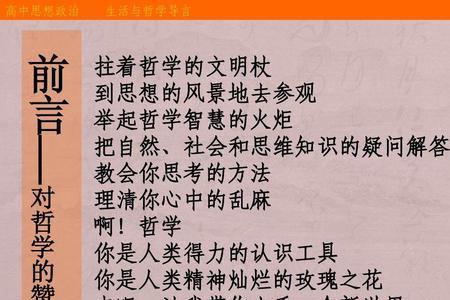 高中思想政治 生活与哲学导言
前言——对哲学的赞
拄着哲学的文明杖
到思想的风景地去参观
举起哲学智慧的火炬
把自然、社会和思维知识的疑问解答
教会你思考的方法
理清你心中的乱麻
啊！哲学
你是人类得力的认识工具
你是人类精神灿烂的玫瑰之花